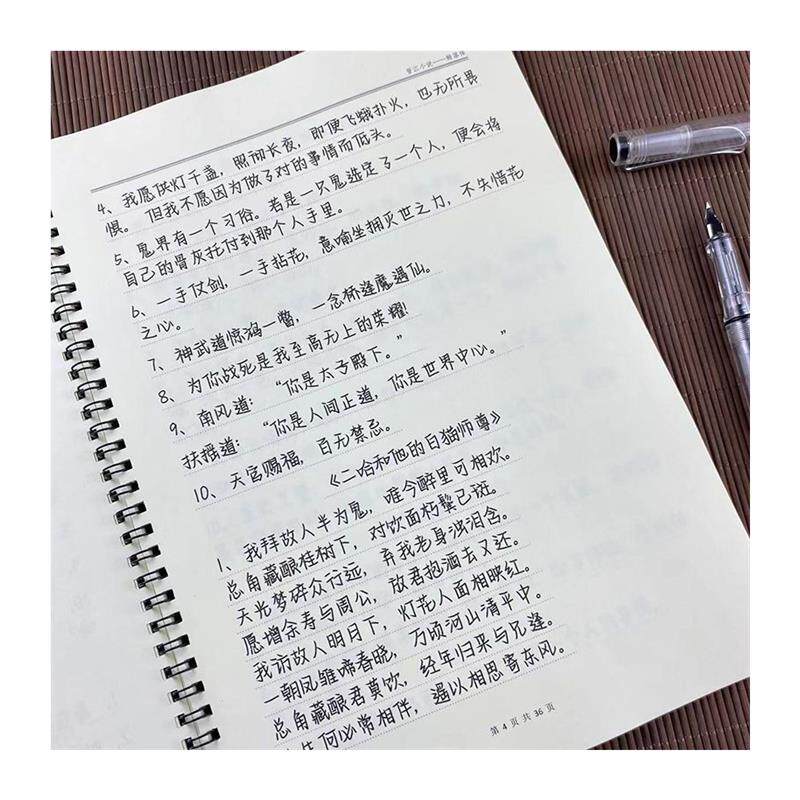 晋江小说——鲸落体
4、我愿供灯千盏，照彻长夜，即便飞蛾扑火，也无所畏
惧。但我不愿因为做了对的事情而低头。
5、鬼界有一个习俗。若是一只鬼选定了一个人，便会将
自己的骨灰托付到那个人手里。
6、一手仗剑，一手拈花，意喻坐拥灭世之力，不失惜花
之心。
7、神武道惊鸿一瞥，一念桥逢魔遇仙。
8、为你战死是我至高无上的荣耀！
9、南风道：“你是太子殿下。”
扶摇道：“你是人间正道，你是世界中心。”
10、天官赐福，百无禁忌。
《二哈和他的白猫师尊》
1、我拜故人半为鬼，唯今醉里可相欢。
总角藏酿桂树下，对饮面朽鬓已斑。
天光梦碎众行远，弃我老身浊泪含。
愿增余寿与周公，放君抱酒去又还。
我访故人明月下，灯花人面相映红。
一朝凤雏啼春晓，万顷河山清平中。
总角藏酿君莫饮，经年归来与兄逢。
何必常相伴，遥以相思寄东风。
第 4 页 共 36 页